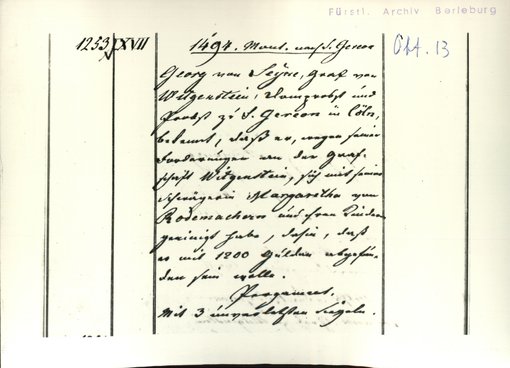 Fürstl. Archiv Berleburg
1253 XVII 1494. Mont. nach S. Gereon Okt. 13
Georg von Seyne, Graf von
Witgenstein, Domprobst und
Probst zu S. Gereon in Cöln,
bekennt, daß er, wegen seiner
Forderungen an der Graf-
schaft Witgenstein, sich mit seiner
Schwägerin Margaretha von
Rodemachern und ihren Kindern
geeinigt habe, dahin, daß
er mit 1200 Gülden abgefun-
den sein wolle.
Pergament.
Mit 3 unverletzten Siegeln.